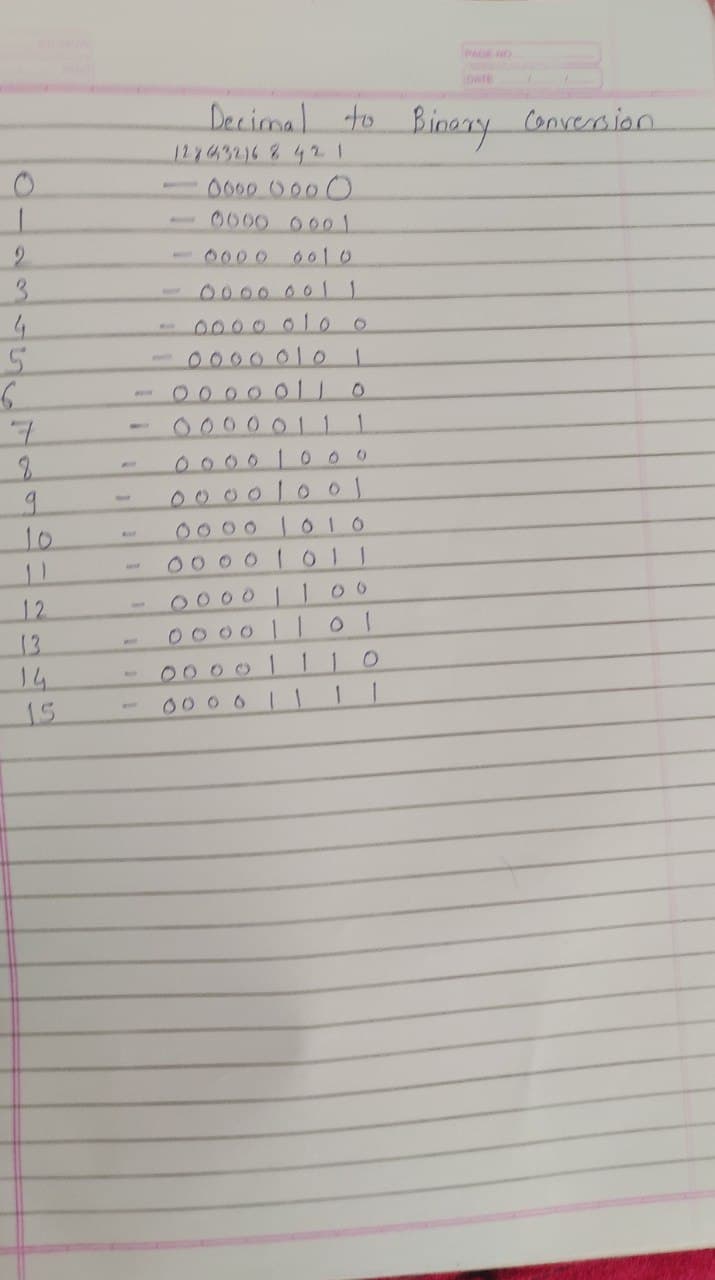 PAGE NO
DATE / /
Decimal to Binary Conversion
128 64 32 16 8 4 2 1
0 — 0000 0000
1 — 0000 0001
2 — 0000 0010
3 — 0000 0011
4 — 0000 0100
5 — 0000 0101
6 — 0000 0110
7 — 0000 0111
8 — 0000 1000
9 — 0000 1001
10 — 0000 1010
11 — 0000 1011
12 — 0000 1100
13 — 0000 1101
14 — 0000 1110
15 — 0000 1111